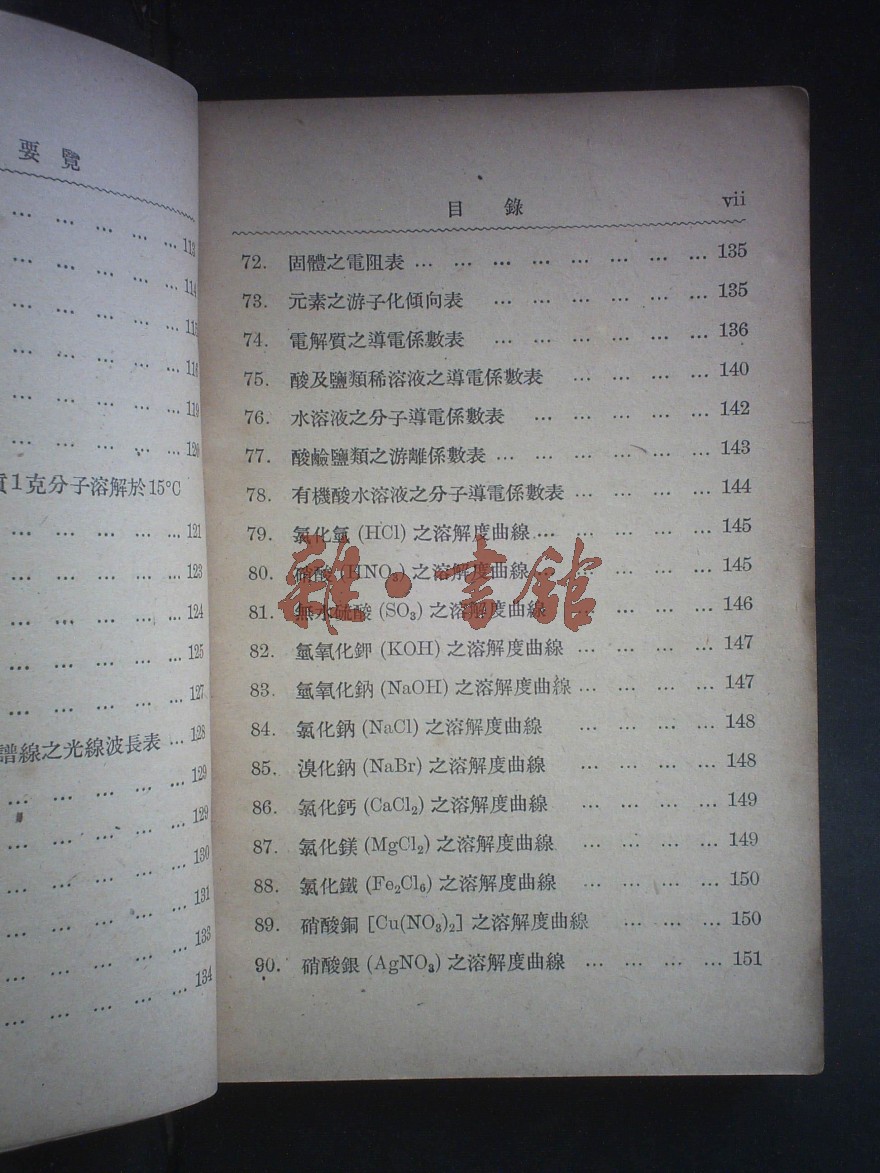 要覽
… … … … … 113
… … … … … 114
… … … … … 115
… … … … … 116
… … … … … 119
… … … … … 120
1克分子溶解於15°C
… … … … … 121
… … … … … 123
… … … … … 124
… … … … … 125
… … … … … 127
譜線之光線波長表 … 128
… … … … … 129
… … … … … 129
… … … … … 130
… … … … … 131
… … … … … 133
… … … … … 134
目錄 vii
72. 固體之電阻表 … … … … … … … … 135
73. 元素之游子化傾向表 … … … … … … 135
74. 電解質之導電係數表 … … … … … … 136
75. 酸及鹽類稀溶液之導電係數表 … … … … 140
76. 水溶液之分子導電係數表 … … … … … 142
77. 酸鹼鹽類之游離係數表 … … … … … … 143
78. 有機酸水溶液之分子導電係數表 … … … … 144
79. 氯化氫 (HCl) 之溶解度曲線 … … … … … 145
80. 硝酸 (HNO₃) 之溶解度曲線 … … … … … 145
81. 無水硫酸 (SO₃) 之溶解度曲線 … … … … 146
82. 氫氧化鉀 (KOH) 之溶解度曲線 … … … … 147
83. 氫氧化鈉 (NaOH) 之溶解度曲線 … … … … 147
84. 氯化鈉 (NaCl) 之溶解度曲線 … … … … 148
85. 溴化鈉 (NaBr) 之溶解度曲線 … … … … 148
86. 氯化鈣 (CaCl₂) 之溶解度曲線 … … … … 149
87. 氯化鎂 (MgCl₂) 之溶解度曲線 … … … … 149
88. 氯化鐵 (Fe₂Cl₆) 之溶解度曲線 … … … … 150
89. 硝酸銅 [Cu(NO₃)₂] 之溶解度曲線 … … … 150
90. 硝酸銀 (AgNO₃) 之溶解度曲線 … … … … 151
雜·書館